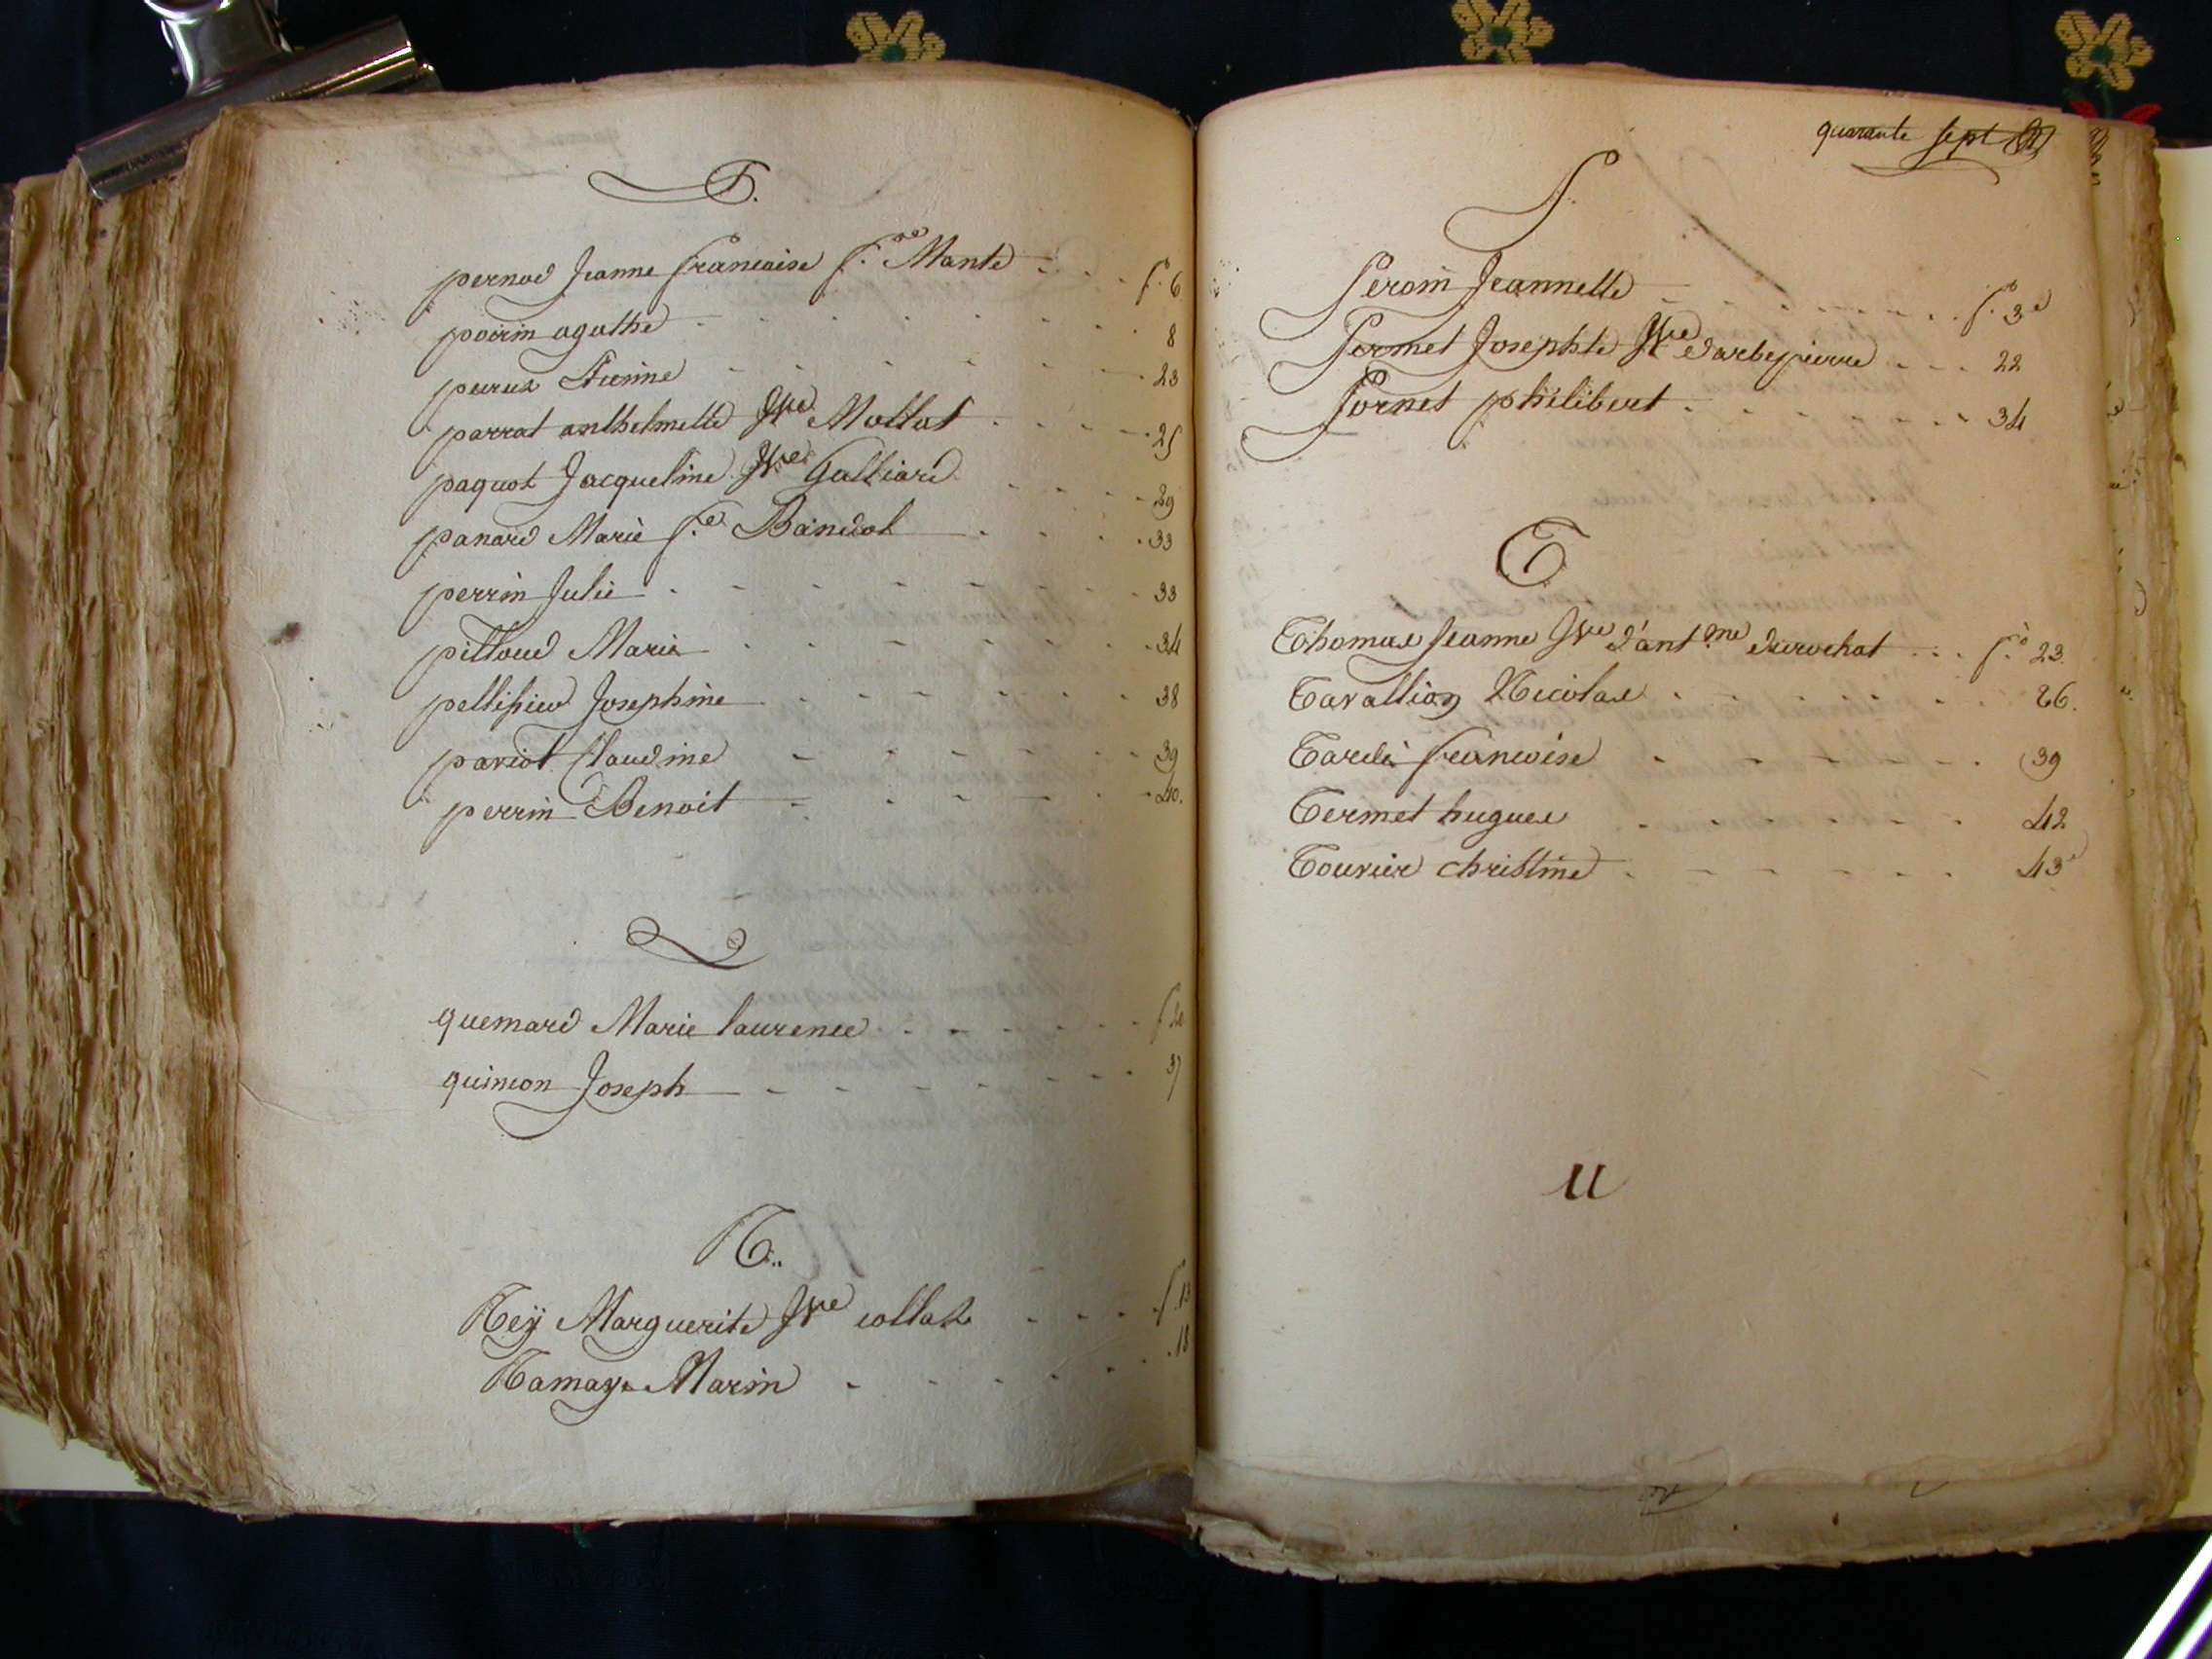 P.
pernod Jeanne francoise f.e Mante f.o 6
poirin agathe 8
peirux Etienne 23
parrat anthelmette Vve Mollat 25
paquot Jacqueline Vve Galliard 29
panard Marie f.e Baindol 33
perrin Julie 33
pilloud Marie 34
pellissier Josephine 38
pariot Claudine 39
perrin Benoit 40.
Q
quemard Marie laurence f 20
quinson Joseph 37
R..
Reÿ Marguerite Vve collat f. 13
Ramaz Marin 18
quarante sept
S.
Seroin Jeannette f.o 3
Sermet Josephte Vve darbepierre 22
Sornet philibert 34
T
Thomas Jeanne Vve d'ant.me durochat f.o 23.
Tavallion Nicolas 26.
Tardi francoise 39
Termet hugues 42
Tourier christine 43
U